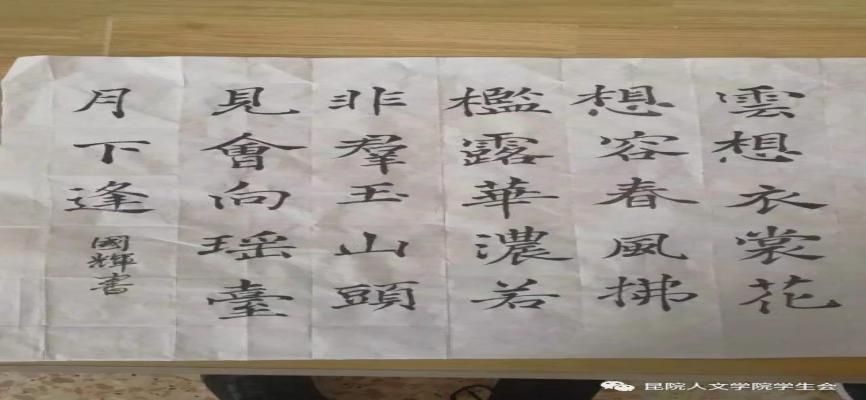 雲想衣裳花
想容春風拂
檻露華濃若
非羣玉山頭
見會向瑶臺
月下逢
國輝書
昆院人文学院学生会